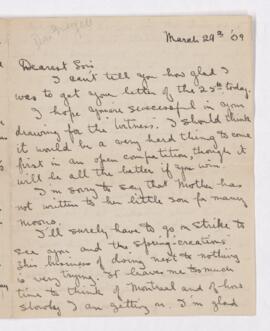 March 29th '09
Dearest Son
I can't tell you how glad I
was to get your letter of the 25th today.
I hope you're successful in your
drawing for the Witness. I should think
it would be a very hard thing to come
first in an open competition, though it
will be all the better if you win.
I'm sorry to say that Mother has
not written to her little son for many
moons.
I'll surely have to go on strike to
see you and the spring-creations.
This business of doing next to nothing
is very trying. It leaves me to much
time to think of Montreal and of how
slowly I am getting on. I'm glad